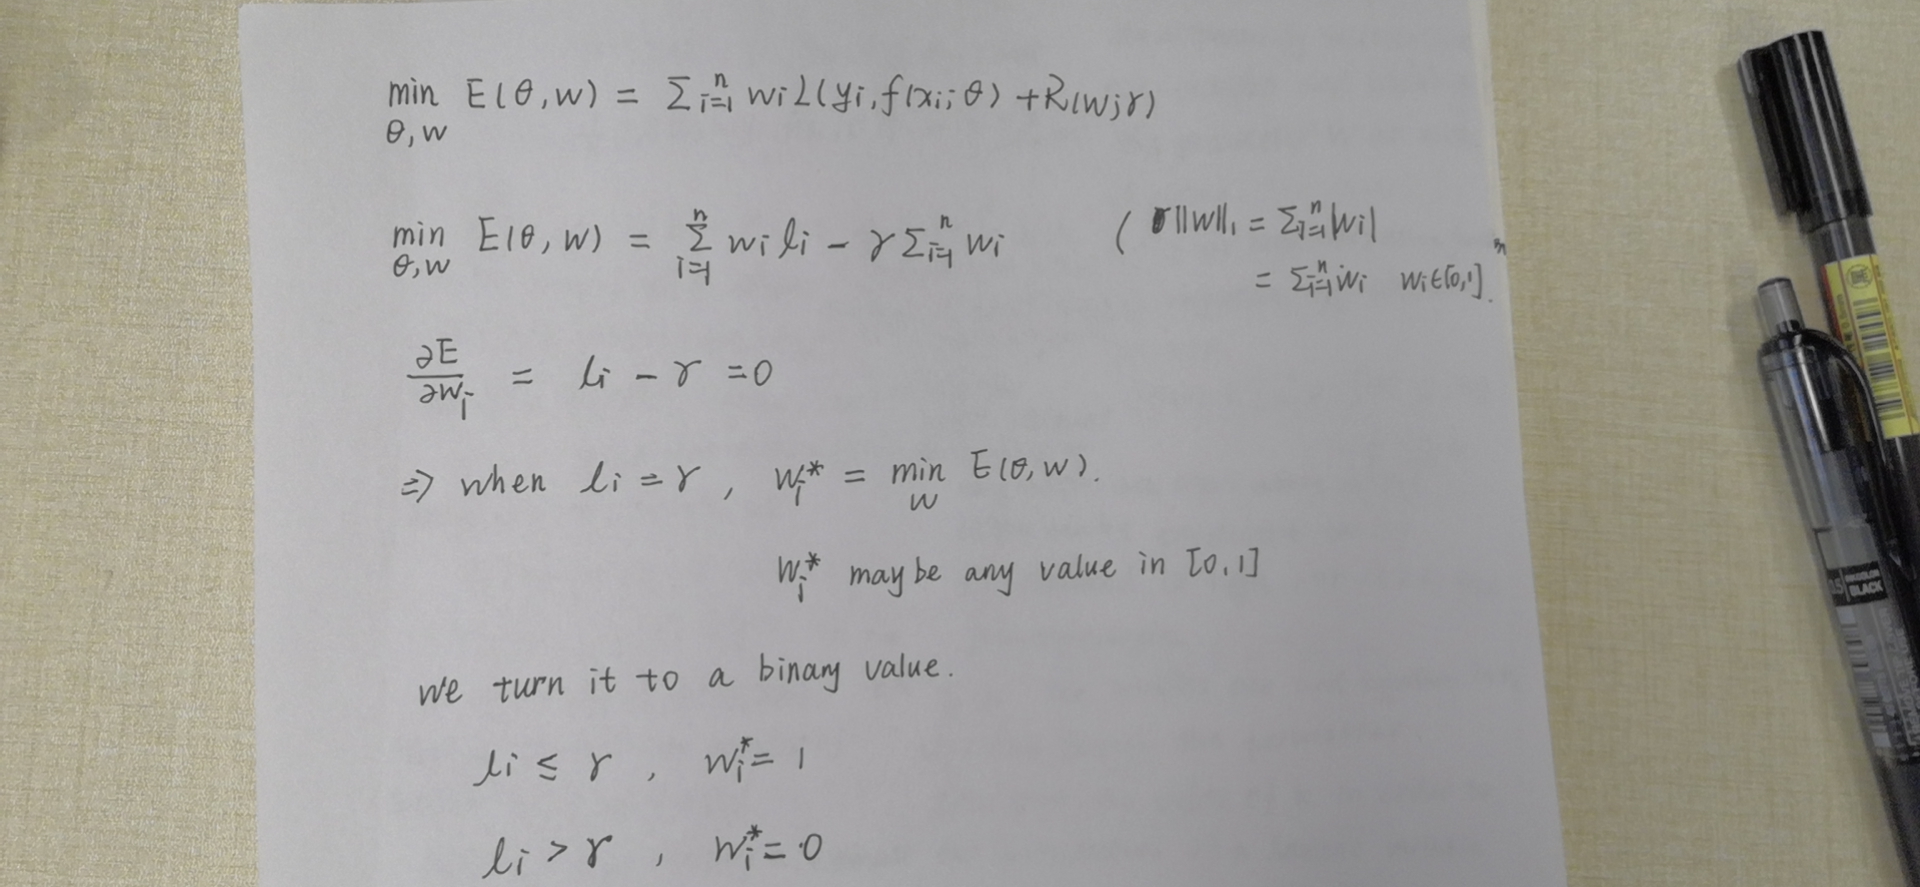 min E(θ,w) = Σ i=1 n wi L(yi, f(xi; θ) + R(w;γ)
θ,w
min E(θ,w) = Σ i=1 n wi li - γ Σ i=1 n wi ( γ||w||₁ = Σ i=1 n |wi|
θ,w
= Σ i=1 n wi wi∈[0,1] n
∂E/∂wi = li - γ = 0
⇒ when li = γ , wi* = min E(θ,w).
w
wi* may be any value in [0,1]
we turn it to a binary value.
li ≤ γ , wi* = 1
li > γ , wi* = 0
BLACK